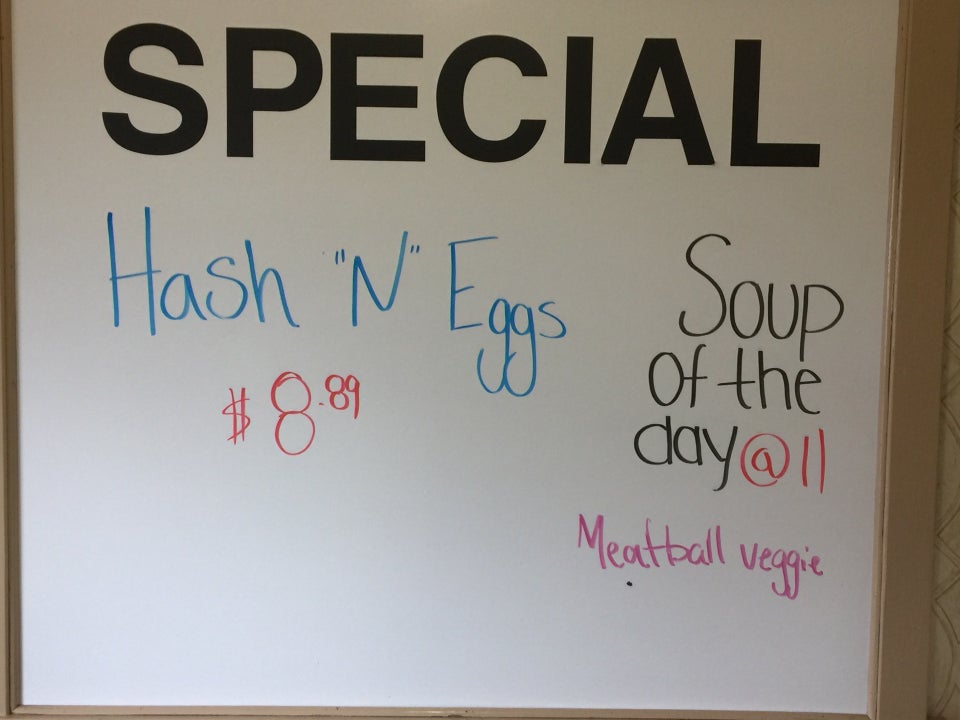 SPECIAL
Hash "N" Eggs
$8.89
Soup
Of the
day@11
Meatball veggie